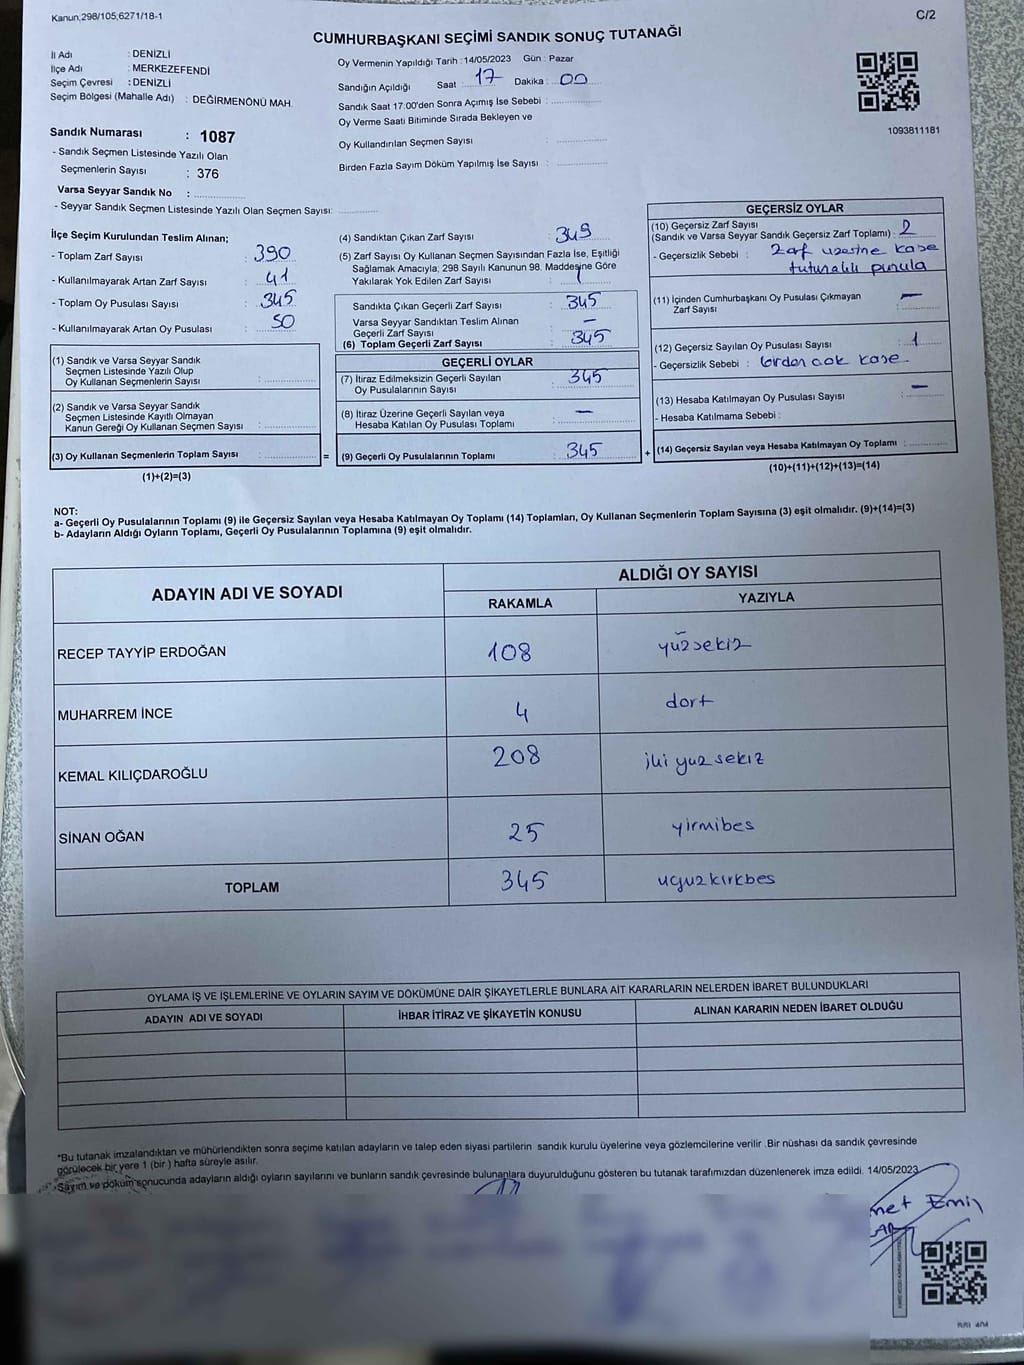 Kanun,298/105,6271/18-1
C/2
CUMHURBAŞKANI SEÇİMİ SANDIK SONUÇ TUTANAĞI
İl Adı : DENİZLİ
İlçe Adı : MERKEZEFENDİ
Seçim Çevresi : DENİZLİ
Seçim Bölgesi (Mahalle Adı) : DEĞİRMENÖNÜ MAH.
Oy Vermenin Yapıldığı Tarih : 14/05/2023 Gün : Pazar
Sandığın Açıldığı Saat : 17 Dakika : 00
Sandık Saat 17:00'den Sonra Açımış İse Sebebi :
Oy Verme Saati Bitiminde Sırada Bekleyen ve
Oy Kullandırılan Seçmen Sayısı :
Birden Fazla Sayım Döküm Yapılmış İse Sayısı :
1093811181
Sandık Numarası : 1087
- Sandık Seçmen Listesinde Yazılı Olan
Seçmenlerin Sayısı : 376
Varsa Seyyar Sandık No :
- Seyyar Sandık Seçmen Listesinde Yazılı Olan Seçmen Sayısı:
İlçe Seçim Kurulundan Teslim Alınan;
- Toplam Zarf Sayısı : 390
- Kullanılmayarak Artan Zarf Sayısı : 41
- Toplam Oy Pusulası Sayısı : 345
- Kullanılmayarak Artan Oy Pusulası : 50
(1) Sandık ve Varsa Seyyar Sandık
Seçmen Listesinde Yazılı Olup
Oy Kullanan Seçmenlerin Sayısı :
(2) Sandık ve Varsa Seyyar Sandık
Seçmen Listesinde Kayıtlı Olmayan
Kanun Gereği Oy Kullanan Seçmen Sayısı :
(3) Oy Kullanan Seçmenlerin Toplam Sayısı : =
(1)+(2)=(3)
(4) Sandıktan Çıkan Zarf Sayısı : 349
(5) Zarf Sayısı Oy Kullanan Seçmen Sayısından Fazla İse, Eşitliği
Sağlamak Amacıyla; 298 Sayılı Kanunun 98. Maddesine Göre
Yakılarak Yok Edilen Zarf Sayısı :
Sandıkta Çıkan Geçerli Zarf Sayısı : 345
Varsa Seyyar Sandıktan Teslim Alınan
Geçerli Zarf Sayısı : –
(6) Toplam Geçerli Zarf Sayısı : 345
GEÇERLİ OYLAR
(7) İtiraz Edilmeksizin Geçerli Sayılan
Oy Pusulalarının Sayısı : 345
(8) İtiraz Üzerine Geçerli Sayılan veya
Hesaba Katılan Oy Pusulası Toplamı : –
(9) Geçerli Oy Pusulalarının Toplamı : 345 +
GEÇERSİZ OYLAR
(10) Geçersiz Zarf Sayısı
(Sandık ve Varsa Seyyar Sandık Geçersiz Zarf Toplamı) : 2
- Geçersizlik Sebebi : Zarf uzerine kase
tutunalılı pusula
(11) İçinden Cumhurbaşkanı Oy Pusulası Çıkmayan
Zarf Sayısı : –
(12) Geçersiz Sayılan Oy Pusulası Sayısı : 1
- Geçersizlik Sebebi : birden cok kase
(13) Hesaba Katılmayan Oy Pusulası Sayısı : –
- Hesaba Katılmama Sebebi :
(14) Geçersiz Sayılan veya Hesaba Katılmayan Oy Toplamı :
(10)+(11)+(12)+(13)=(14)
NOT:
a- Geçerli Oy Pusulalarının Toplamı (9) ile Geçersiz Sayılan veya Hesaba Katılmayan Oy Toplamı (14) Toplamları, Oy Kullanan Seçmenlerin Toplam Sayısına (3) eşit olmalıdır. (9)+(14)=(3)
b- Adayların Aldığı Oyların Toplamı, Geçerli Oy Pusulalarının Toplamına (9) eşit olmalıdır.
ADAYIN ADI VE SOYADI ALDIĞI OY SAYISI
RAKAMLA YAZIYLA
RECEP TAYYİP ERDOĞAN 108 yüzsekiz
MUHARREM İNCE 4 dort
KEMAL KILIÇDAROĞLU 208 iki yuz sekiz
SİNAN OĞAN 25 yirmibes
TOPLAM 345 uçyuzkırkbes
OYLAMA İŞ VE İŞLEMLERİNE VE OYLARIN SAYIM VE DÖKÜMÜNE DAİR ŞİKAYETLERLE BUNLARA AİT KARARLARIN NELERDEN İBARET BULUNDUKLARI
ADAYIN ADI VE SOYADI İHBAR İTİRAZ VE ŞİKAYETİN KONUSU ALINAN KARARIN NEDEN İBARET OLDUĞU
*Bu tutanak imzalandıktan ve mühürlendikten sonra seçime katılan adayların ve talep eden siyasi partilerin sandık kurulu üyelerine veya gözlemcilerine verilir .Bir nüshası da sandık çevresinde
görülecek bir yere 1 (bir ) hafta süreyle asılır.
Sayım ve döküm sonucunda adayların aldığı oyların sayılarını ve bunların sandık çevresinde bulunanlara duyurulduğunu gösteren bu tutanak tarafımızdan düzenlenerek imza edildi. 14/05/2023
met Emin